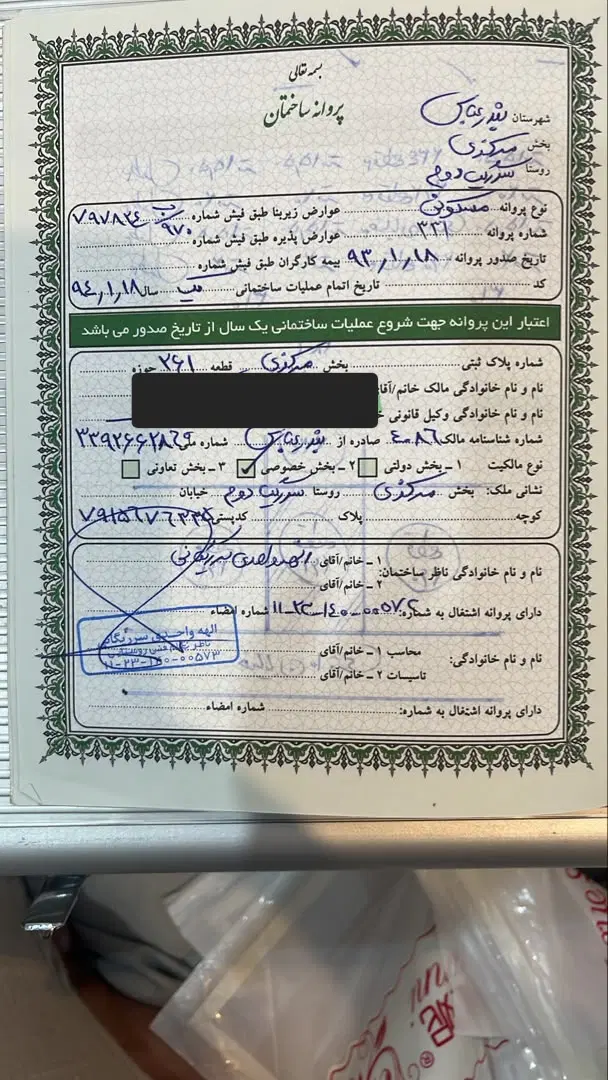 بسمه تعالی
پروانه ساختمان
شهرستان بندرعباس
بخش مرکزی
روستا سرریگ دوم
نوع پروانه مسکونی عوارض زیربنا طبق فیش شماره ۷۹۷۸۳۴
شماره پروانه ۳۳۱ عوارض پذیره طبق فیش شماره ۹۷۰
تاریخ صدور پروانه ۹۳,۱,۱۸ بیمه کارگران طبق فیش شماره
کد تاریخ اتمام عملیات ساختمانی یک سال ۹۴,۱,۱۸
اعتبار این پروانه جهت شروع عملیات ساختمانی یک سال از تاریخ صدور می باشد
شماره پلاک ثبتی بخش مرکزی قطعه ۲۶۱ حوزه
نام و نام خانوادگی مالک خانم/آقا
نام و نام خانوادگی وکیل قانونی
شماره شناسنامه مالک صادره از بندرعباس شماره ملی
نوع مالکیت ۱ـ بخش دولتی ۲ـ بخش خصوصی ✓ ۳ـ بخش تعاونی
نشانی ملک: بخش مرکزی روستا سرریگ دوم خیابان
کوچه پلاک کدپستی
نام و نام خانوادگی ناظر ساختمان: ۱ـ خانم/آقای
۲ـ خانم/آقای
دارای پروانه اشتغال به شماره: ۱۱-۲۳-۱۴۰-۰۰۵۷۳ شماره امضاء
الهه واحدی سرریگانی
۱۱-۲۳-۱۴۰-۰۰۵۷۳
نام و نام خانوادگی: محاسب ۱ـ خانم/آقای
تاسیسات ۲ـ خانم/آقای
دارای پروانه اشتغال به شماره: شماره امضاء